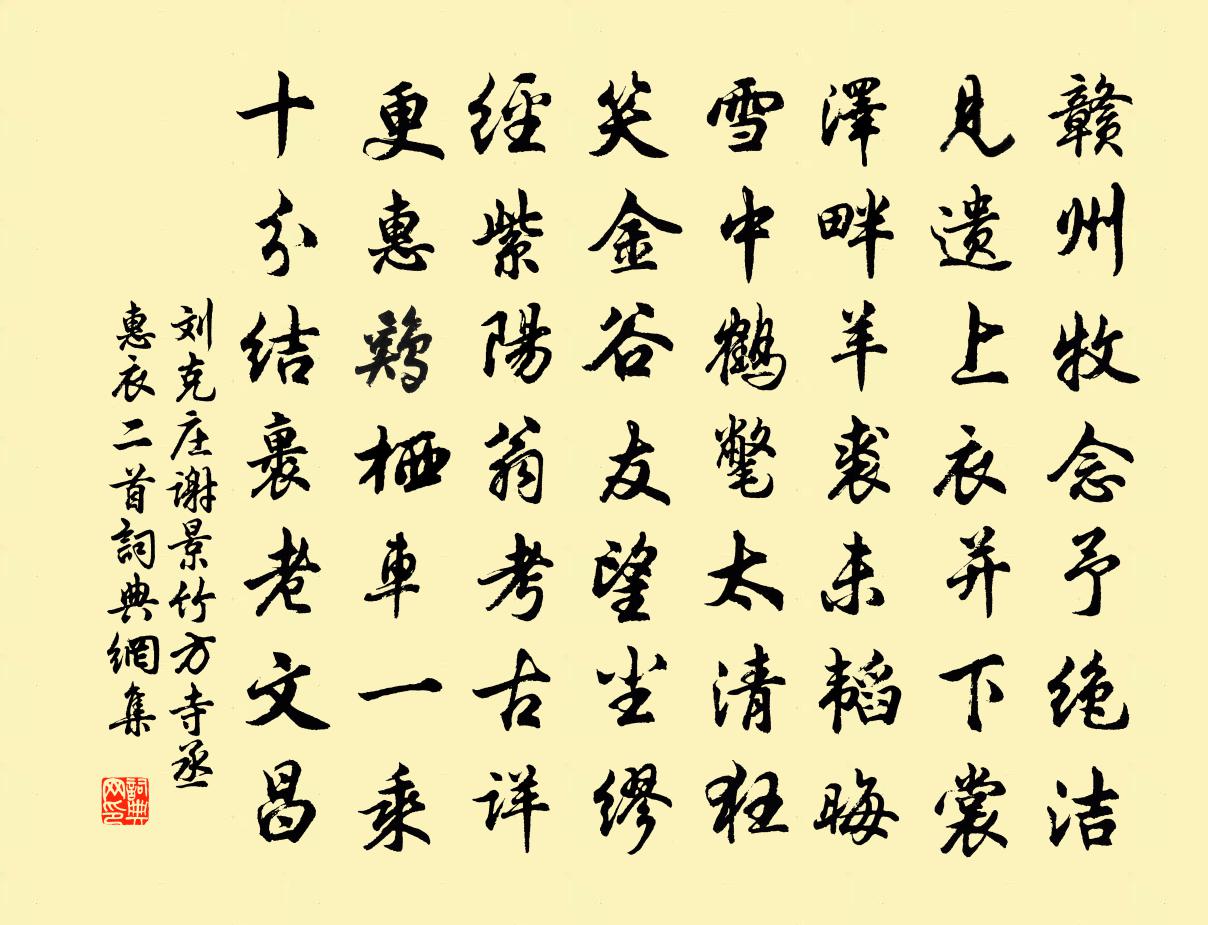 赣州牧念予绝洁
見遗上衣并下裳
澤畔羊裘未韬晦
雪中鶴氅太清狂
笑金谷友望尘繆
經紫陽翁考古详
更惠鶏栖車一乘
十分结裹老文昌
刘克庄谢景竹方寺丞
惠衣二首詞典網集
詞典网印